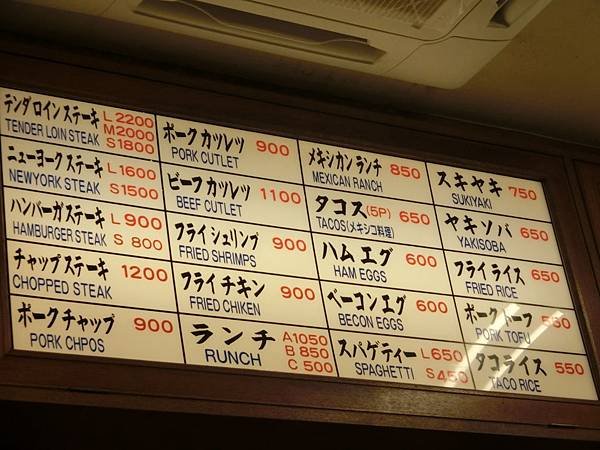 テンダロインステーキ L2200
TENDER LOIN STEAK M2000
S1800
ニューヨークステーキ L1600
NEWYORK STEAK S1500
ハンバーガステーキ L900
HAMBURGER STEAK S 800
チャップステーキ 1200
CHOPPED STEAK
ポークチャップ 900
PORK CHPOS
ポークカツレツ 900
PORK CUTLET
ビーフカツレツ 1100
BEEF CUTLET
フライシュリンプ 900
FRIED SHRIMPS
フライチキン 900
FRIED CHIKEN
ランチ A1050
RUNCH B 850
C 500
メキシカンランチ 850
MEXICAN RANCH
タコス(5P) 650
TACOS(メキシコ料理)
ハムエグ 600
HAM EGGS
ベーコンエグ 600
BECON EGGS
スパゲティー L650
SPAGHETTI S450
スキヤキ 750
SUKIYAKI
ヤキソバ 650
YAKISOBA
フライライス 650
FRIED RICE
ポークトーフ 550
PORK TOFU
タコライス 550
TACO RICE